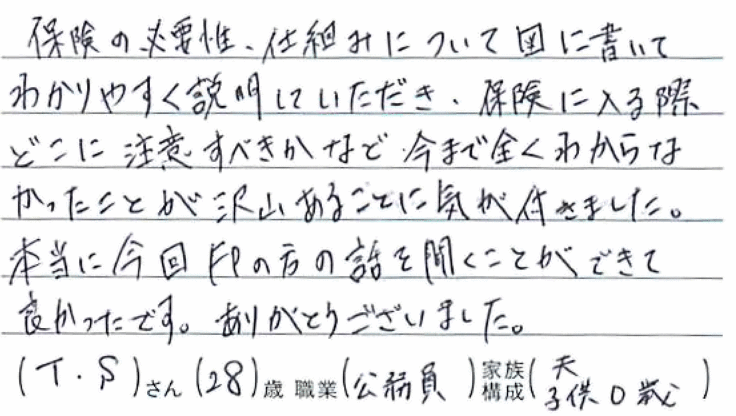 保険の必要性、仕組みについて図に書いて
わかりやすく説明していただき、保険に入る際
どこに注意すべきかなど、今まで全くわからな
かったことが沢山あることに気が付きました。
本当に今回FPの方の話を聞くことができて
良かったです。ありがとうございました。
(T.S)さん(28)歳 職業(公務員)家族構成(夫 子供0歳)